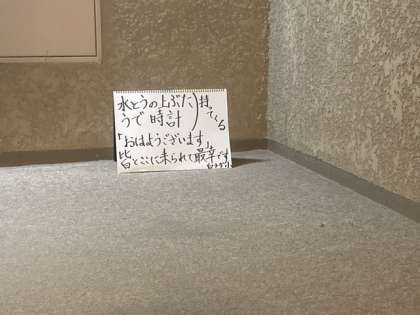 水とうの上ぶた
うで時計
持ってくる
「おはようございます」
皆とここに来られて最幸です